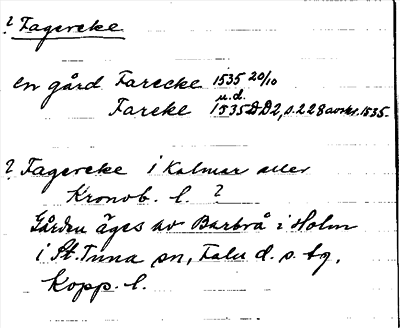 ? Fagereke
en gård Farecke 1535 20/10
u.d.
Fareke 1535 DD2, s. 228 avskr. 1535.
? Fagereke i Kalmar eller
Kronob. l. ?
Gården äges av Barbrå i Holm
i St. Tuna sn, Falu d. s. tg,
Kopp. l.